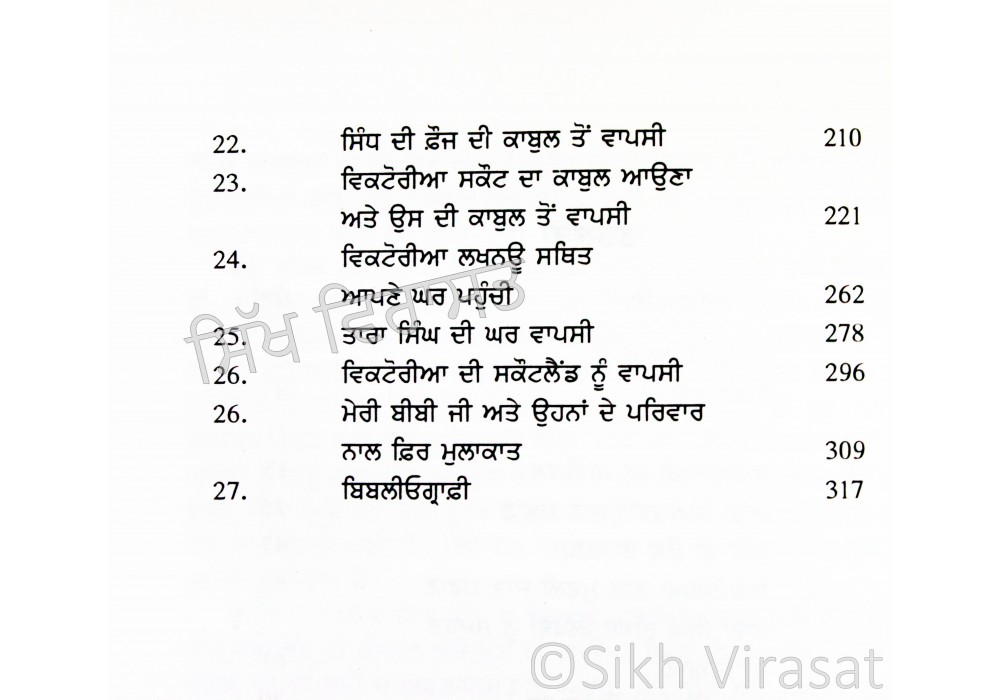 22. ਸਿੰਧ ਦੀ ਫ਼ੌਜ ਦੀ ਕਾਬੁਲ ਤੋਂ ਵਾਪਸੀ 210
23. ਵਿਕਟੋਰੀਆ ਸਕੌਟ ਦਾ ਕਾਬੁਲ ਆਉਣਾ
ਅਤੇ ਉਸ ਦੀ ਕਾਬੁਲ ਤੋਂ ਵਾਪਸੀ 221
24. ਵਿਕਟੋਰੀਆ ਲਖਨਊ ਸਥਿਤ
ਆਪਣੇ ਘਰ ਪਹੁੰਚੀ 262
25. ਤਾਰਾ ਸਿੰਘ ਦੀ ਘਰ ਵਾਪਸੀ 278
26. ਵਿਕਟੋਰੀਆ ਦੀ ਸਕੌਟਲੈਂਡ ਨੂੰ ਵਾਪਸੀ 296
26. ਮੇਰੀ ਬੀਬੀ ਜੀ ਅਤੇ ਉਹਨਾਂ ਦੇ ਪਰਿਵਾਰ
ਨਾਲ ਫ਼ਿਰ ਮੁਲਾਕਾਤ 309
27. ਬਿਬਲੀਓਗ੍ਰਾਫ਼ੀ 317
ਸਿੱਖ ਵਿਰਾਸਤ
©Sikh Virasat